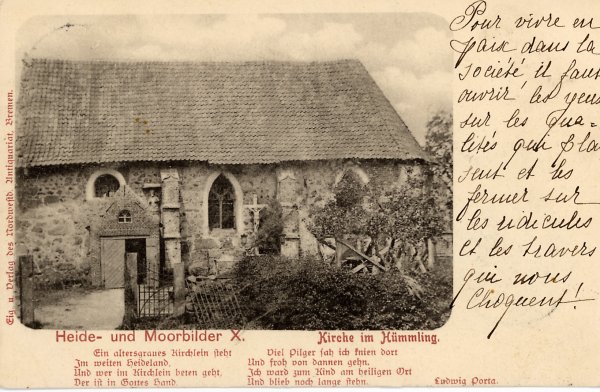 Pour vivre en
paix dans la
société il faut
ouvrir les yeux
sur les qua-
lités qui plai
sent et les
fermer sur
les ridicules
et les travers
qui nous
Choquent!
Eig. u. Verlag des Nordwestd. Antiquariat, Bremen.
Heide- und Moorbilder X.
Kirche im Hümmling.
Ein altersgraues Kirchlein steht
Im weiten Heideland,
Und wer im Kirchlein beten geht,
Der ist in Gottes Hand.
Viel Pilger sah ich knien dort
Und froh von dannen gehn.
Ich ward zum Kind am heiligen Ort
Und blieb noch lange stehn.
Ludwig Porta.